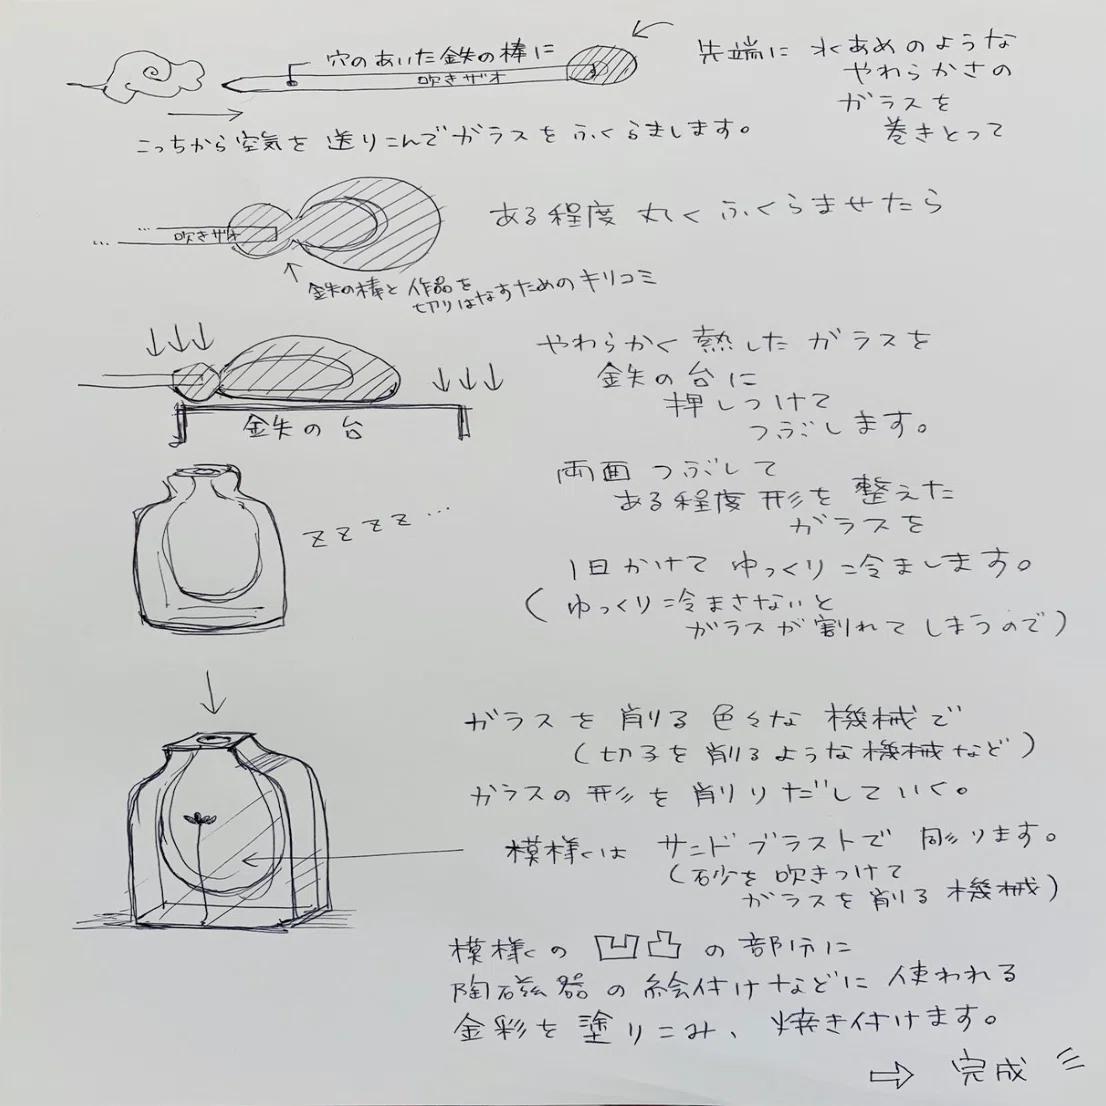 穴のあいた鉄の棒に
吹きザオ
先端に 水あめのような
やわらかさの
ガラスを
巻きとって
こっちから空気を送りこんでガラスをふくらまします。
ある程度 丸く ふくらませたら
… 吹きザオ
鉄の棒と作品を
切りはなすためのキリコミ
やわらかく 熱した ガラスを
鉄の台に
押しつけて
つぶします。
鉄の台
両面 つぶして
ある程度 形を 整えた
ガラスを
zzzz…
1日かけて ゆっくり冷まします。
(ゆっくり冷まさないと
ガラスが 割れて しまうので)
ガラスを 削る 色々な 機械で
(切子を削るような機械など)
ガラスの 形を 削りだしていく。
模様は サンドブラストで 彫ります。
(砂を 吹きつけて
ガラスを 削る 機械)
模様の 凹凸 の部分に
陶磁器の絵付けなどに使われる
金彩を塗りこみ、焼き付けます。
⇨ 完成